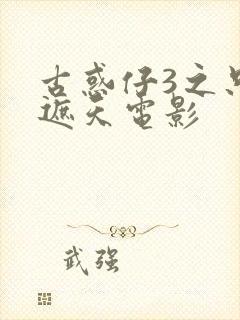 古惑仔3之只
遮天电影
武强